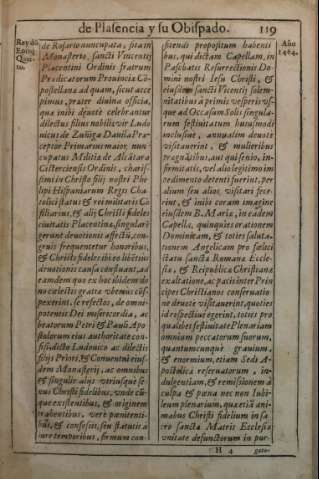 de Plasencia y su Obispado. 119
Rey dõ
Enriq.
Quar
to.
de Rosario nuncupata, sita in
Monasterio, sancti Vincentij
Placentini Ordinis fratrum
Prædicatorum Prouinciæ Cõ-
postellana ad quam, sicut acce
pimus, præter diuina officia,
quæ inibi deuotè celebrantur
dilectus filius nobilis vir Ludo
uicus de Zuñiga Dauila Præ-
ceptor Primarius maior nun-
cupatus Militiæ de Alcãtara
Cisterciensis Ordinis, charis-
simi in Christo filij nostri Phi-
lippi Hispaniarum Regis Cha-
tolici status & rei militaris Cõ
siliarius, & alij Christi fideles
ciuitatis Placentina, singularē
gerunt deuotionis affectũ, con-
gruis frequentetur honoribus,
& Christi fideles ibi eo libētius
deuotionis causa confluant, ad
eamdem quo ex hoc ibidem do
no cælestis gratia vberius cõs-
pexerint, se refectos, de omni-
potentis Dei misericordia, ac
beatorum Petri & Pauli Apo
stolorum eius authoritate con-
fisi, dicto Ludouico ac dilectis
filijs Priori, & Conuentui eius-
dem Monasterij, ac omnibus
& singulis alijs vtriusque se-
xus Christi fidelibus, vnde cũ-
que existentibus, & originem
trahentibus, verè pœnitenti-
bus, & confessis, seu statutis à
iure temporibus, firmum con
fitendi propositum habenti
bus, qui dictam Capellam, in
Paschatis Resurrectionis Do-
mini nostri Iesu Christi, &
eiusdem sancti Vicentij solem-
nitatibus à primis vesperis vs-
que ad Occasum Solis singula-
rum festiuitatum huiusmodi
inclusiuè, annuatim deuotè
visitauerint, & mulieribus
pregnãtibus, aut qui senio, in-
firmitatis, vel alio legitimo im
pedimento detenti fuerint, per
alium seu alios, visitari fece-
rint, & inibi coram imagine
eiusdem B. Mariæ, in eadem
Capella, quinquies orationem
Dominicam, & toties saluta-
tionem Angelicam pro fælici
statu sanctæ Romanæ Eccle-
siæ, & Reipublicæ Christianæ
exaltatione, ac pacis inter Prin
cipes Christianos conseruatio-
ne deuotè visitauerint, quoties
id respectiuè egerint, toties pro
qualibet festiuitate Plenariam
omnium peccatorum suorum,
quantumcumque grauium,
& enormium, etiam Sedi A-
postolicæ reseruatorum, in-
dulgentiam, & remissionem à
culpa & pœna nec non Iubi-
leum plenarium, quæ etiã ani-
mabus Christi fidelium in sa-
cro sanctæ Matris Ecclesiæ
vnitate defunctorum in pur-
Año
1464.
H 4 gato-